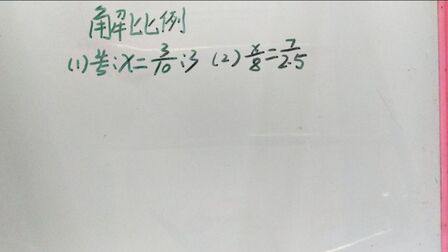 解比例
(1) 4/5 : x = 3/10 : 3 (2) x/8 = 7/2.5